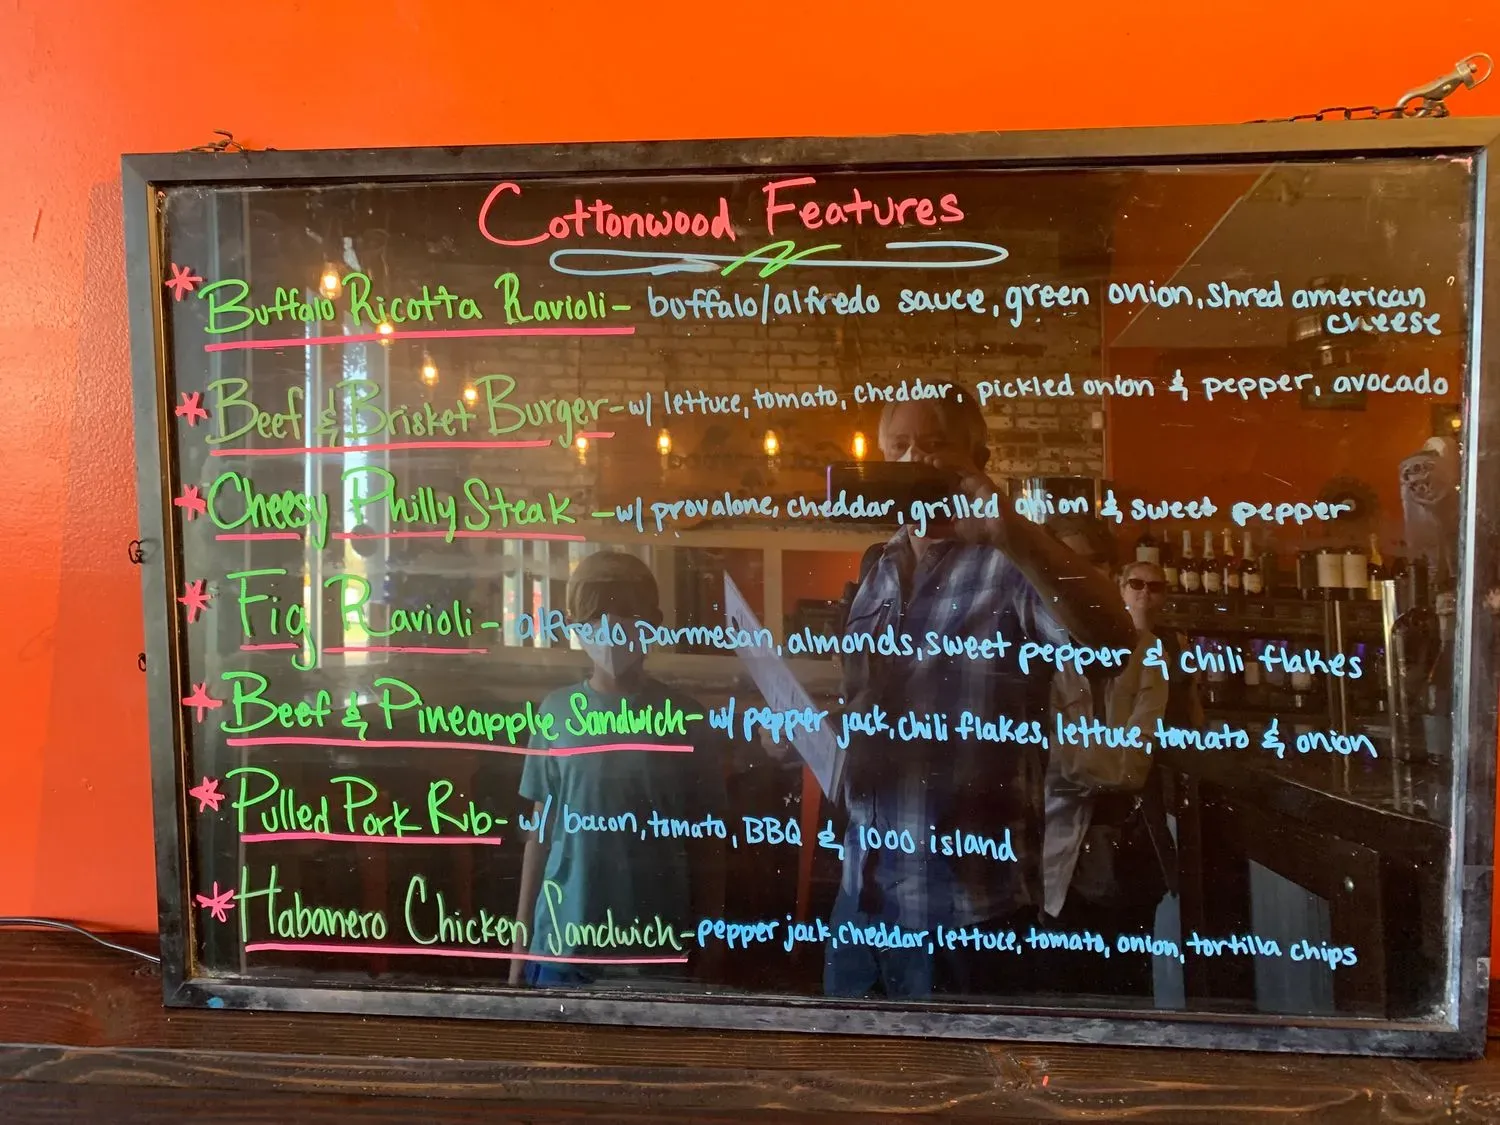 Cottonwood Features
* Buffalo Ricotta Ravioli - buffalo/alfredo sauce, green onion, shred american
cheese
* Beef & Brisket Burger - w/ lettuce, tomato, cheddar, pickled onion & pepper, avocado
* Cheesy Philly Steak - w/ provalone, cheddar, grilled onion & sweet pepper
* Fig Ravioli - alfredo, parmesan, almonds, sweet pepper & chili flakes
* Beef & Pineapple Sandwich - w/ pepper jack, chili flakes, lettuce, tomato & onion
* Pulled Pork Rib - w/ bacon, tomato, BBQ & 1000 island
* Habanero Chicken Sandwich - pepper jack, cheddar, lettuce, tomato, onion, tortilla chips